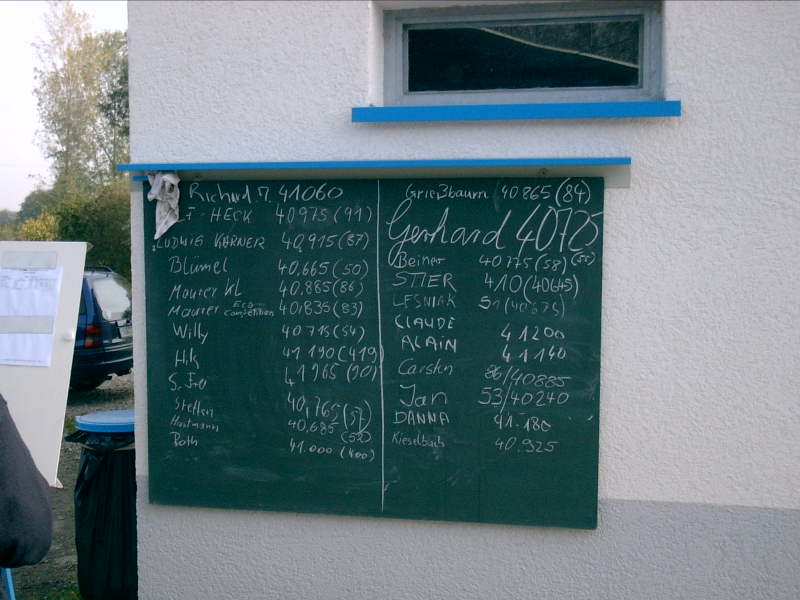 Richard M. 41060
HECK 40975 (91)
LUDWIG KARNER 40,915 (87)
Blümel 40,665 (50)
Maurer KL 40,885 (86)
Maurer Eco-Competition 40,835 (83)
Willy 40,715 (54)
Hik 41190 (419)
S. Fro 41965 (90)
Steffen 40,765 (57)
Hartmann 40,685 (52)
Roth 41.000 (400)
Grießbaum 40865 (84)
Gerhard 40725
Beiner 40775 (58) (55)
STIER 410 (40645)
LESNIAK 51 (40675)
CLAUDE 41200
ALAIN 41140
Carsten 86/40885
Jan 53/40240
DANNA 41.180
Kieselbach 40.925